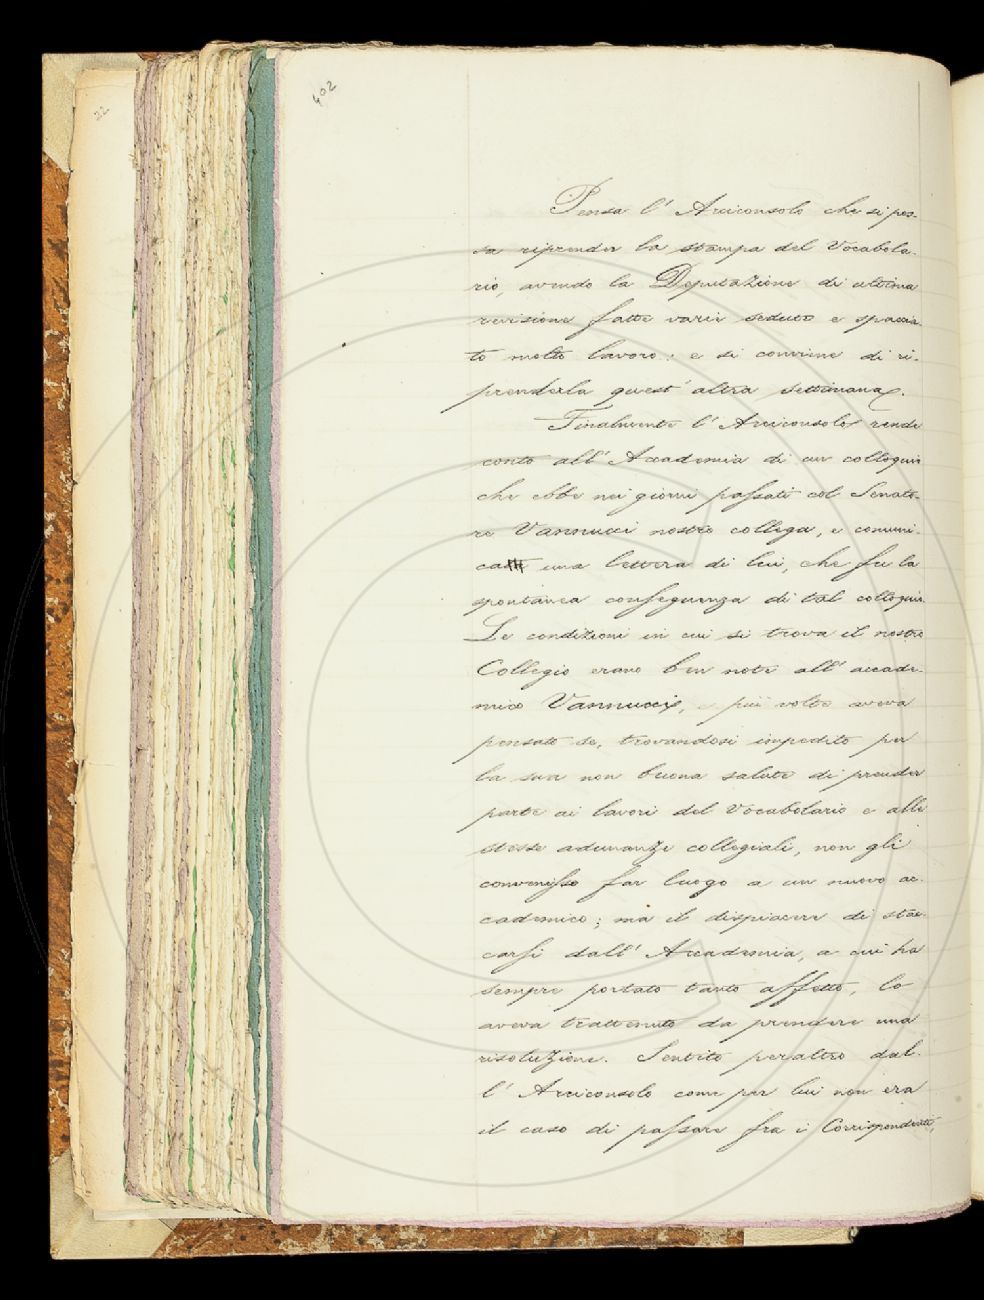 402
22
Pensa l' Arciconsolo che si pos-
sa riprender la stampa del Vocabola-
rio, avendo la Deputazione di ultima
revisione fatte varie sedute e spaccia-
to molto lavoro: e si conviene di ri-
prenderla quest' altra settimana.
Finalmente l' Arciconsolo rende
conto all' Accademia di un colloquio
che ebbe nei giorni passati col Senato-
re Vannucci nostro collega, e comuni-
ca una lettera di lui, che fu la
spontanea conseguenza di tal colloquio.
Le condizioni in cui si trova il nostro
Collegio erano ben note all' accade-
mico Vannucci, e più volte aveva
pensato se, trovandosi impedito per
la sua non buona salute di prender
parte ai lavori del Vocabolario e alle
stesse adunanze collegiali, non gli
convenisse far luogo a un nuovo ac-
cademico; ma il dispiacere di stac-
carsi dall' Accademia, a cui ha
sempre portato tanto affetto, lo
aveva trattenuto da prendere una
risoluzione. Sentito peraltro dal-
l' Arciconsolo come per lui non era
il caso di passare fra i Corrispondenti,